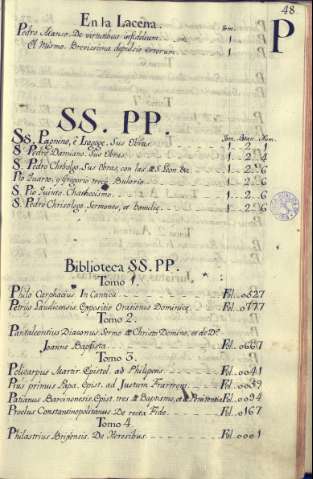 48.
En la Lacena.
P
Tom.
Pedro Alonso. De virtutibus infidelium. 1
El Mismo. Brevissima depulsio errorum. 1
SS. PP.
Tom. Stan. Num.
SS. Pagnino, e Isagoge. Sus Obras 1. 2.
S. Pedro Damiano. Sus Obras 1. 2. 4
S. Pedro Chrisologo. Sus Obras, con las de S. Leon &c 1. 2. 6
Pio Quarto, y Gregorio trece. Bulario. 1. 2. 6
S. Pio Quinto. Chathecismo 1. 2. 6
S. Pedro Chrysologo. Sermones, et homilie. 1. 2. 6
Biblioteca SS. PP.
Tomo 1.
Philo Carphacius In Cantica Fol. 0627
Petrus Laudicensis. Expositio Orationis Dominice Fol. 0777
Tomo 2.
Pantaleontius Diaconus. Sermo de Christo Domino, et de Dº
Joanne Baptista Fol. 0667
Tomo 3.
Policarpus Martir. Epistol. ad Philipens. Fol. 0041
Pius primus Papa. Epist. ad Justum Fratrem Fol. 0039
Patianus Barcinonensis. Epist. tres de Baptismo, et de Penitentia Fol. 0094
Proclus Constantinopolitanus De recta Fide. Fol. 0167
Tomo 4
Philastrius Brijensis. De Heresibus. Fol. 0001